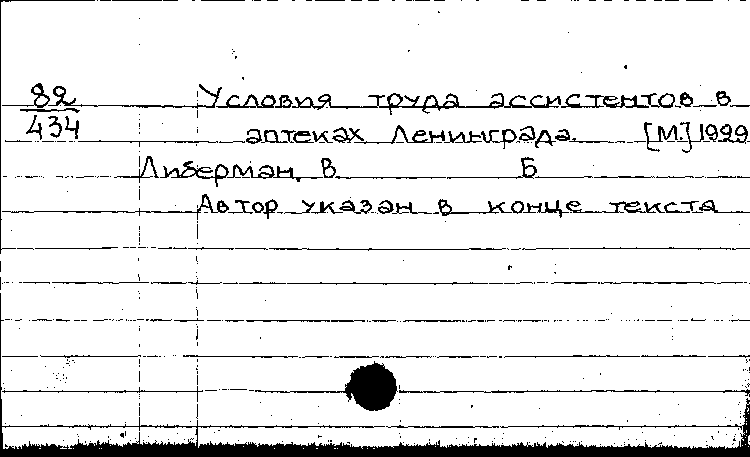 82 Условия труда ассистентов в
434 аптеках Ленинграда. [М.] 1929
Либерман, В Б
Автор указан в конце текста